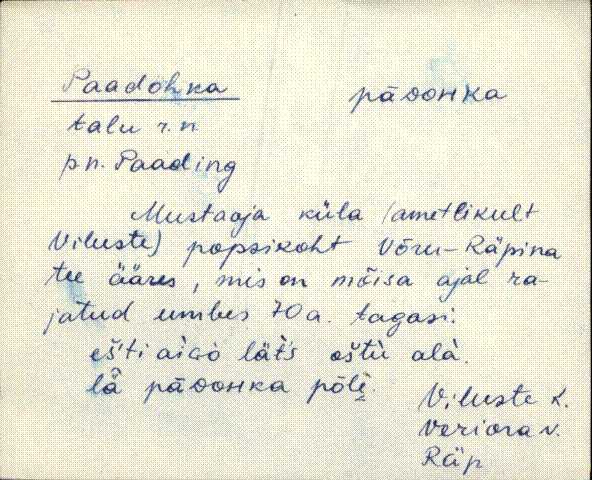 Paadohka
pāᴅoʜka
talu r.n.
pn. Paading
Mustaoja küla (ametlikult
Viluste) popsikoht Võru-Räpina
tee ääres, mis on mõisa ajal ra-
jatud umbes 70 a. tagasi.
lǟ pāᴅoʜka põlè
Viluste k.
Veriora v.
Räp